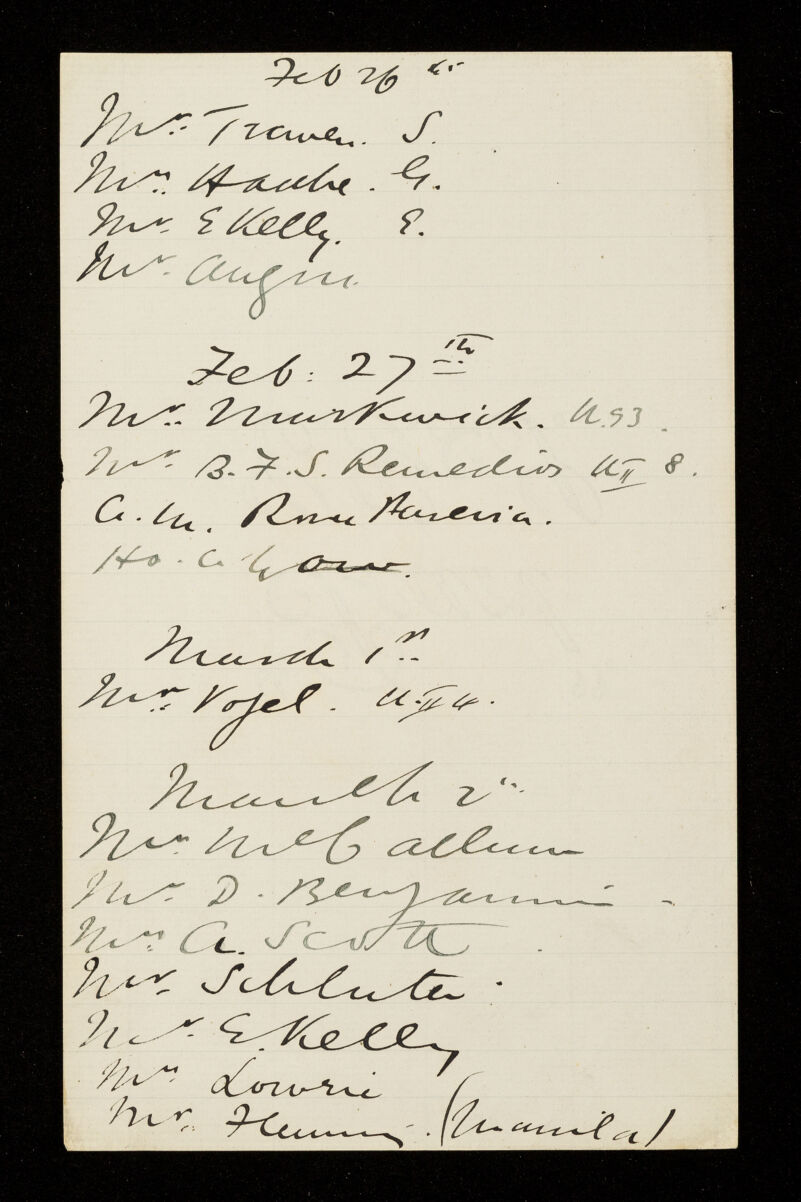 Feb 26th
Mr. Traven. S.
Mrs. Haabe. G.
Mr. E Kelly. E.
Mr.
Feb: 27th
Mr. Markwick. U.
Mr. B. F. S. Remedios U II 8.
A. M. Roza Pereira.
Ho.
March 1st
Mr. Vogel. U. II
March 2nd
Mrs. McCallum
Mr. D. Benjamin
Mrs. A. Scott
Mr. Schluter
Mr. E. Kelly
Mrs. Lowrie
Mr. (Manila)